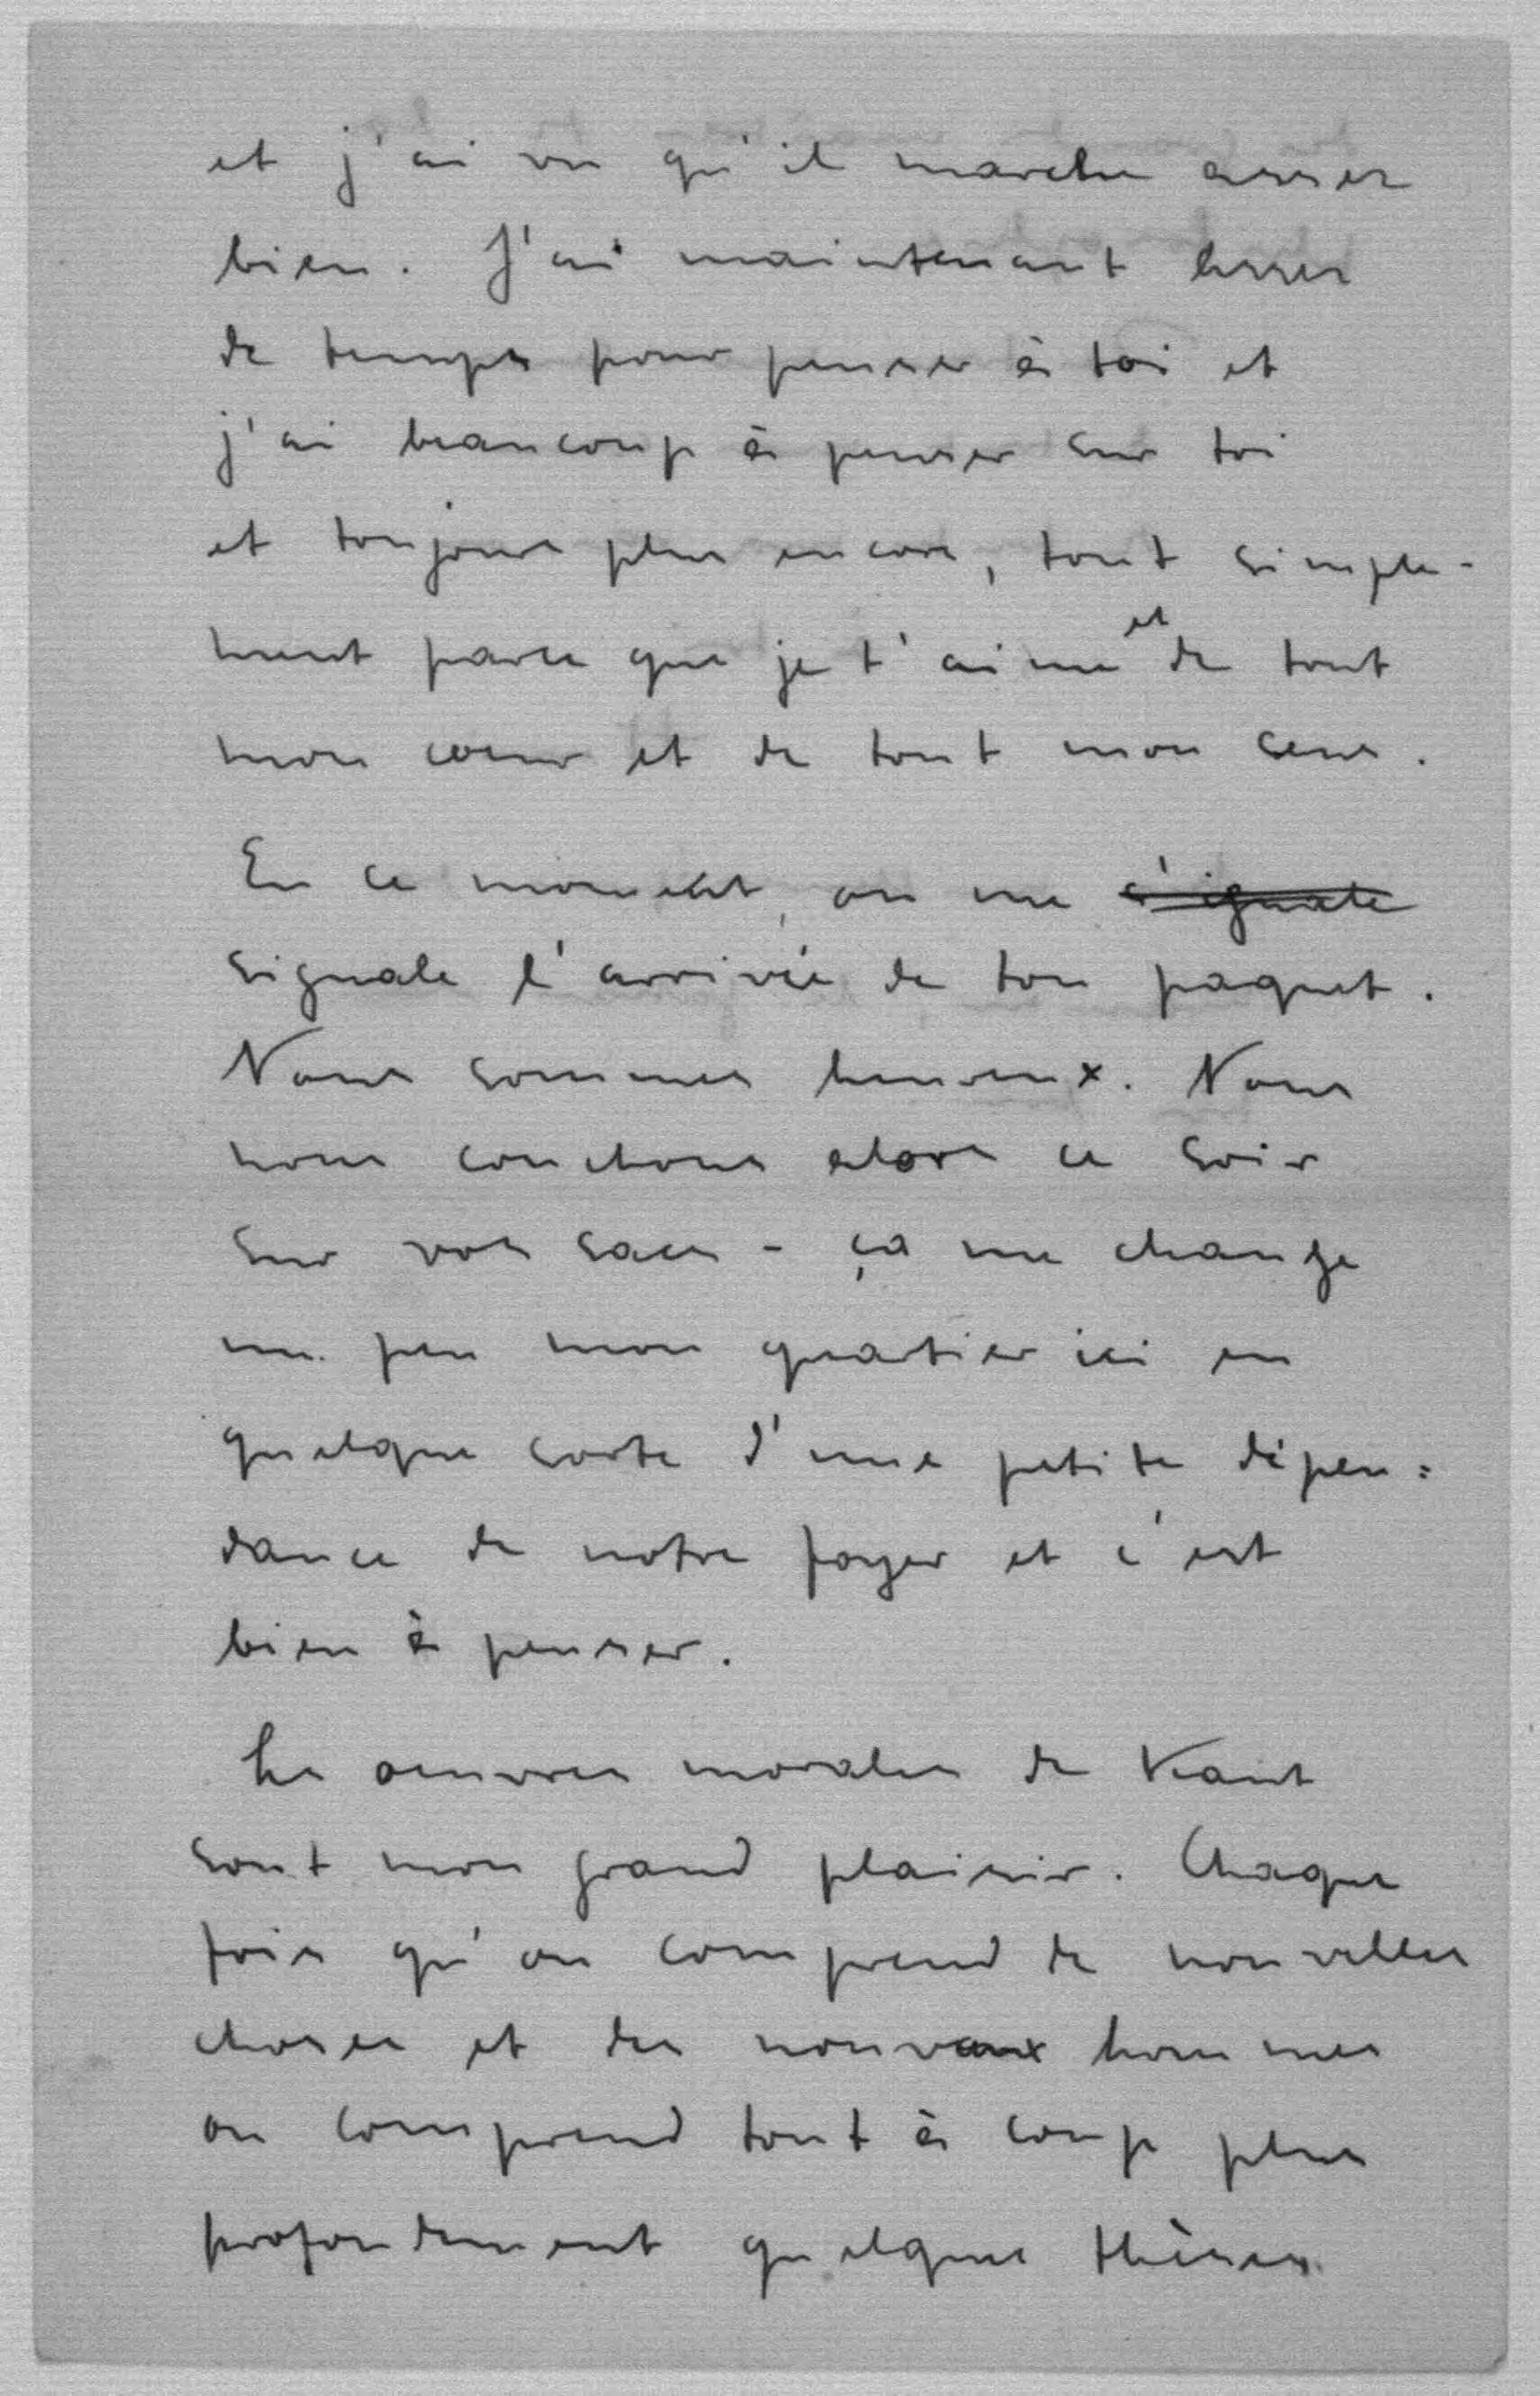 et j'ai vu qu'il marche assez
bien. J'ai maintenant assez
de temps pour penser à toi et
j'ai beaucoup à penser sur toi
et toujours plus encore, tout simple-
ment parce que je t'aime et de tout
mon coeur et de tout mon sens.
En ce moment, on me s'ignale
signale l'arrivée de ton paquet.
Nous sommes heureux. Nous
nous couchons alors ce soir
sur vos sacs - ça me change
un peu mon quartier ici en
quelque sorte d'une petite dépen=
dance de notre foyer et c'est
bien à penser.
Les oeuvres morales de Kant
sont mon grand plaisir. Chaque
fois qu'on comprend de nouvelles
choses et des nouveaux hommes
on comprend tout à coup plus
profondement quelques thèses